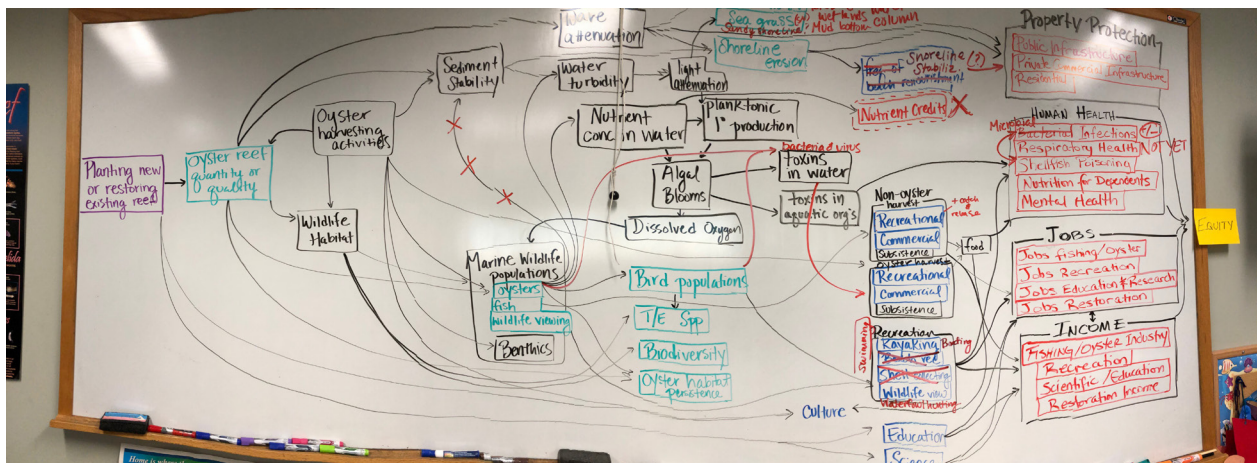 Planting new
or restoring
existing reef
Oyster reef
quantity or
quality
Oyster
harvesting
activities
Wildlife
Habitat
Sediment
Stability
Wave
attenuation
Water
turbidity
light
attenuation
Nutrient
conc in water
planktonic
1° production
Algal
Blooms
Dissolved Oxygen
bacteria & virus
toxins
in water
toxins in
aquatic org's
Marine Wildlife
populations
oysters
fish
wildlife viewing
Benthics
Bird populations
T/E Spp
Biodiversity
Oyster habitat
persistence
Sea grass
wetlands
water
Sandy shoreline
Mud bottom
column
Shoreline
erosion
Shoreline
Stabiliz
(?)
beach renourishment
Nutrient Credits
Non-oyster
harvest
+ catch &
release
Recreational
Commercial
Subsistence
oyster harvest
Recreational
Commercial
Subsistence
food
Recreation
swimming
Kayaking
Boating
Shell collecting
Wildlife view
waterfowl hunting
Culture
Education
Science
Property Protection
Public Infrastructure
Private Commercial Infrastructure
Residential
HUMAN HEALTH
Microbial
Bacterial Infections
+/-
Respiratory Health
NOT YET
Shellfish Poisoning
Nutrition for Dependents
Mental Health
JOBS
Jobs fishing/oyster
Jobs Recreation
Jobs Education & Research
Jobs Restoration
INCOME
FISHING/OYSTER Industry
Recreation
Scientific/Education
Restoration Income
EQUITY
Home is where th